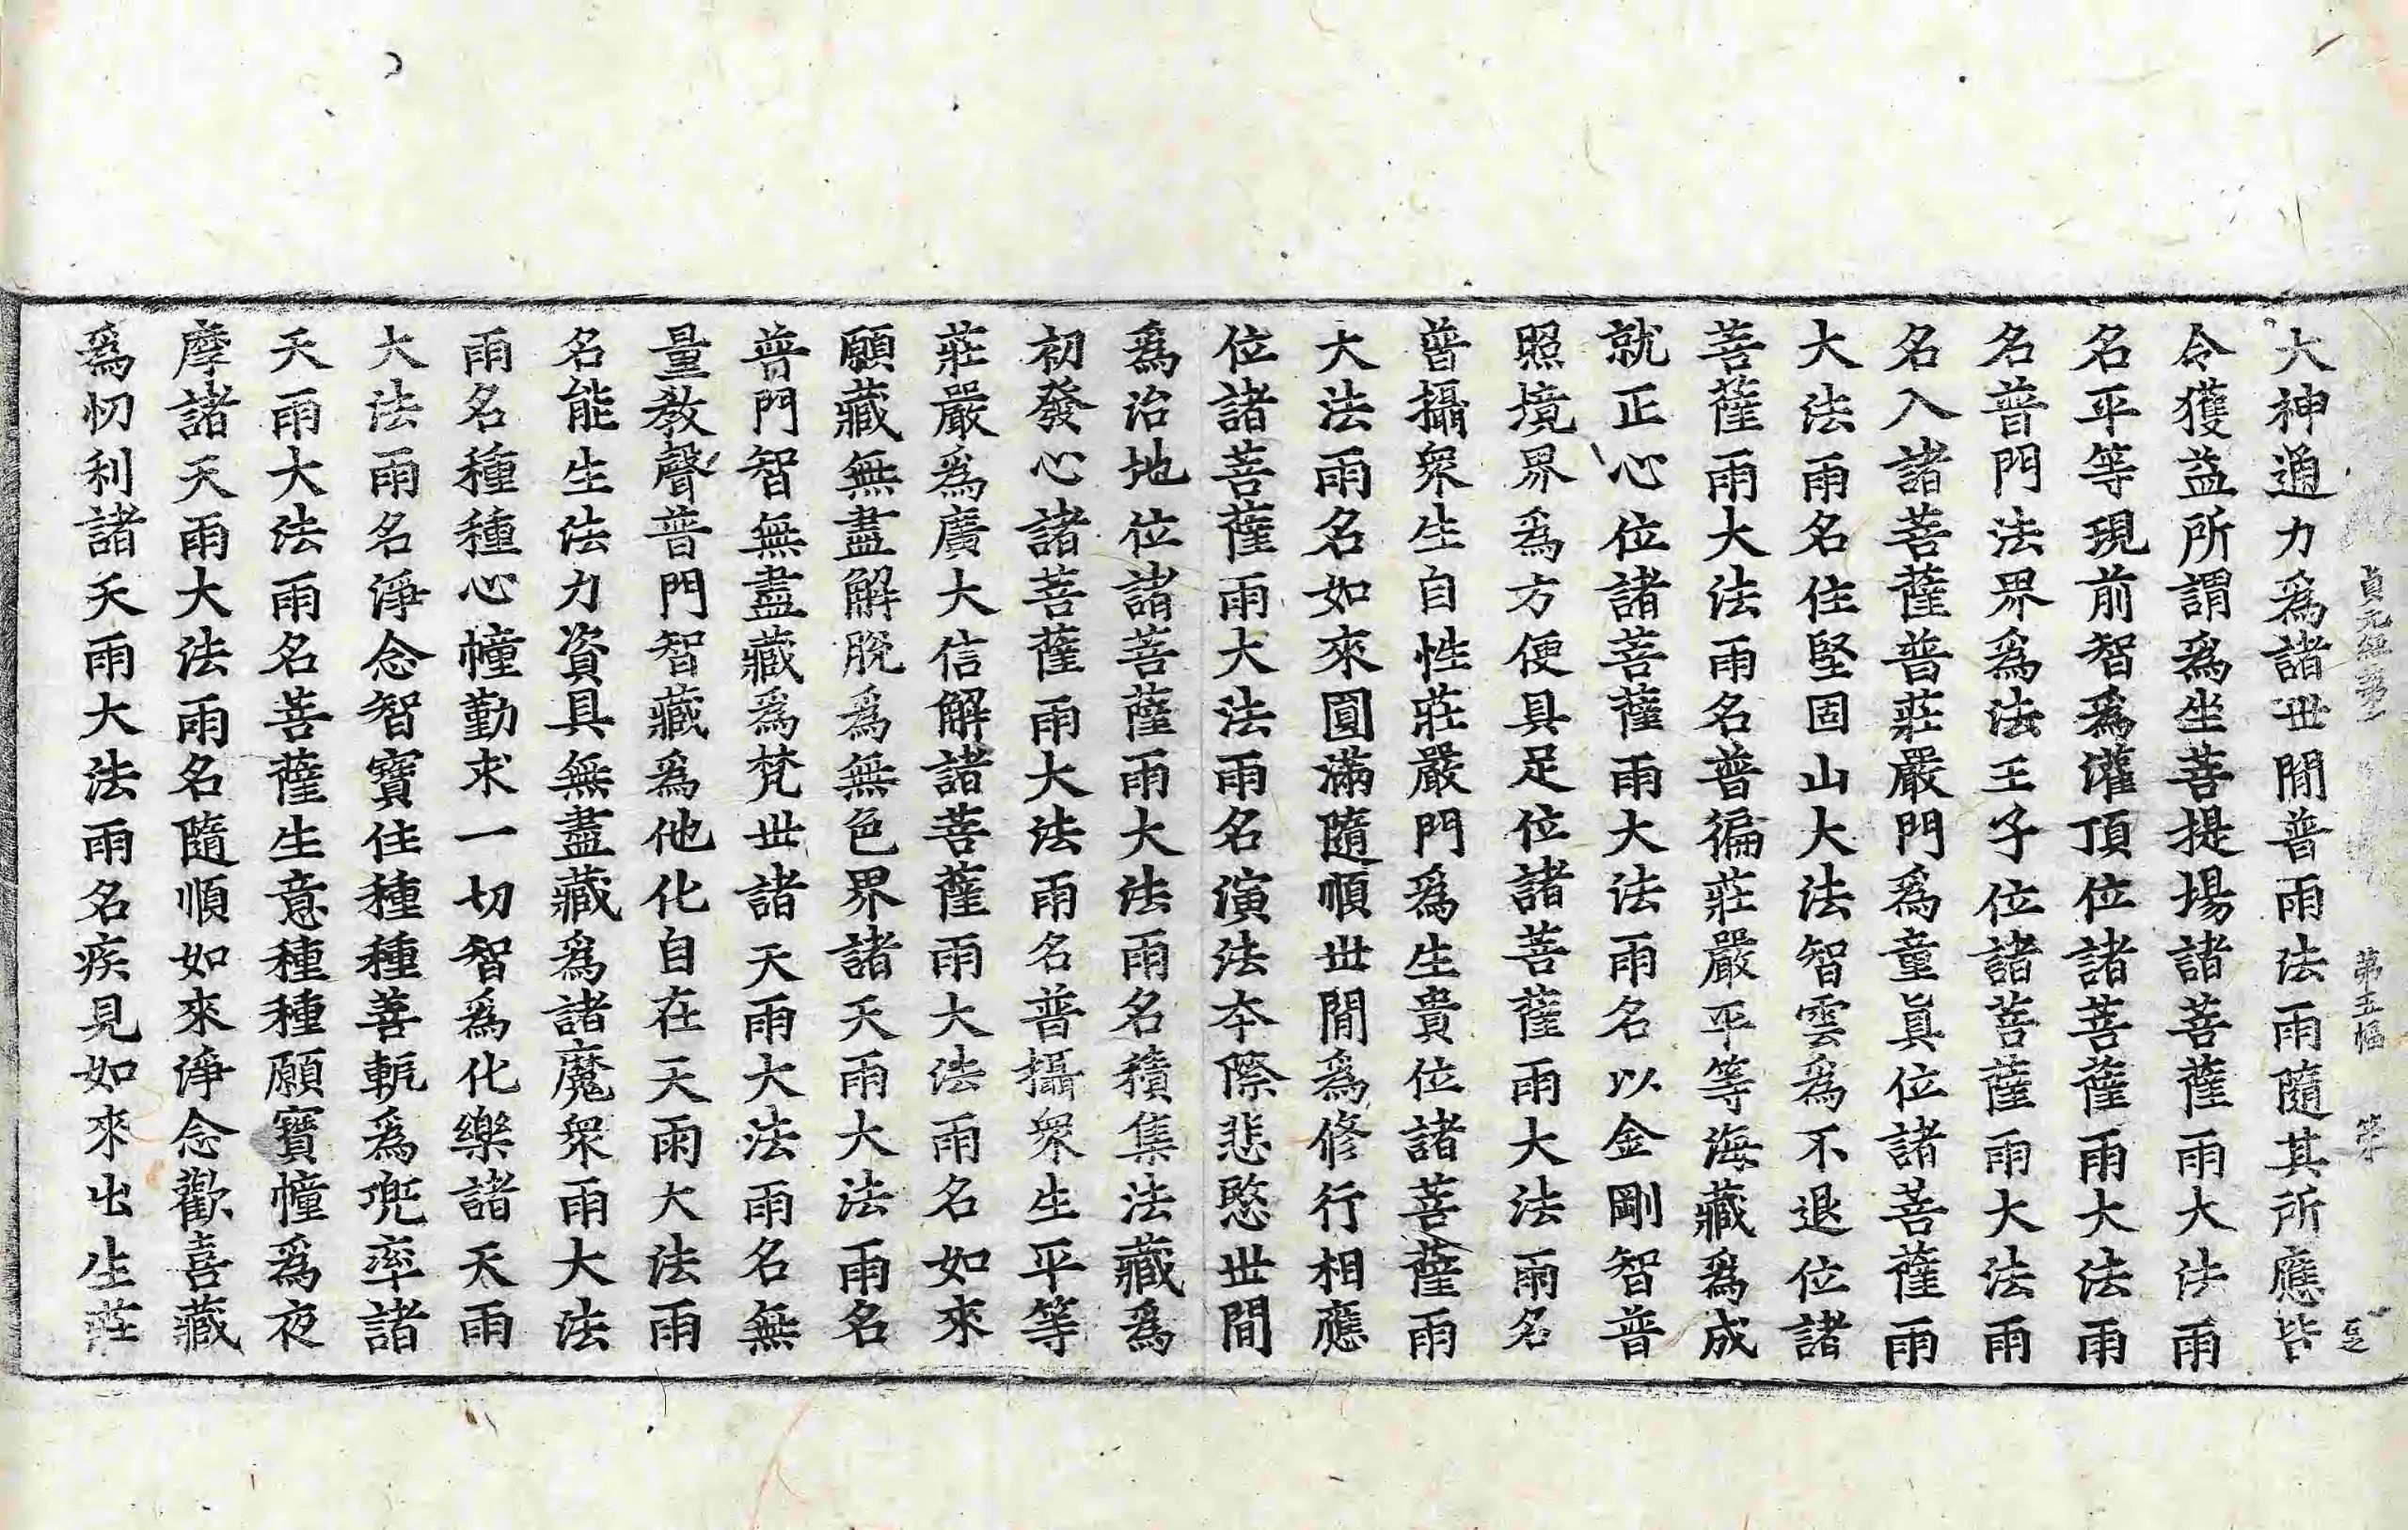 貞元經 第五幅
大神通力爲諸世閒普雨法雨隨其所應皆
令獲益所謂爲坐菩提場諸菩薩雨大法雨
名平等現前智爲灌頂位諸菩薩雨大法雨
名普門法界爲法王子位諸菩薩雨大法雨
名入諸菩薩普莊嚴門爲童眞位諸菩薩雨
大法雨名住堅固山大法智雲爲不退位諸
菩薩雨大法雨名普徧莊嚴平等海藏爲成
就正心位諸菩薩雨大法雨名以金剛智普
照境界爲方便具足位諸菩薩雨大法雨名
普攝衆生自性莊嚴門爲生貴位諸菩薩雨
大法雨名如來圓滿隨順世閒爲修行相應
位諸菩薩雨大法雨名演法本際悲愍世間
爲治地位諸菩薩雨大法雨名積集法藏爲
初發心諸菩薩雨大法雨名普攝衆生平等
莊嚴爲廣大信解諸菩薩雨大法雨名如來
願藏無盡解脫爲無色界諸天雨大法雨名
普門智無盡藏爲梵世諸天雨大法雨名無
量教聲普門智藏爲他化自在天雨大法雨
名能生法力資具無盡藏爲諸魔衆雨大法
雨名種種心幢勤求一切智爲化樂諸天雨
大法雨名淨念智寶住種種善軛爲兜率諸
天雨大法雨名菩薩生意種種願寶幢爲夜
摩諸天雨大法雨名隨順如來淨念歡喜藏
爲忉利諸天雨大法雨名疾見如來出生莊